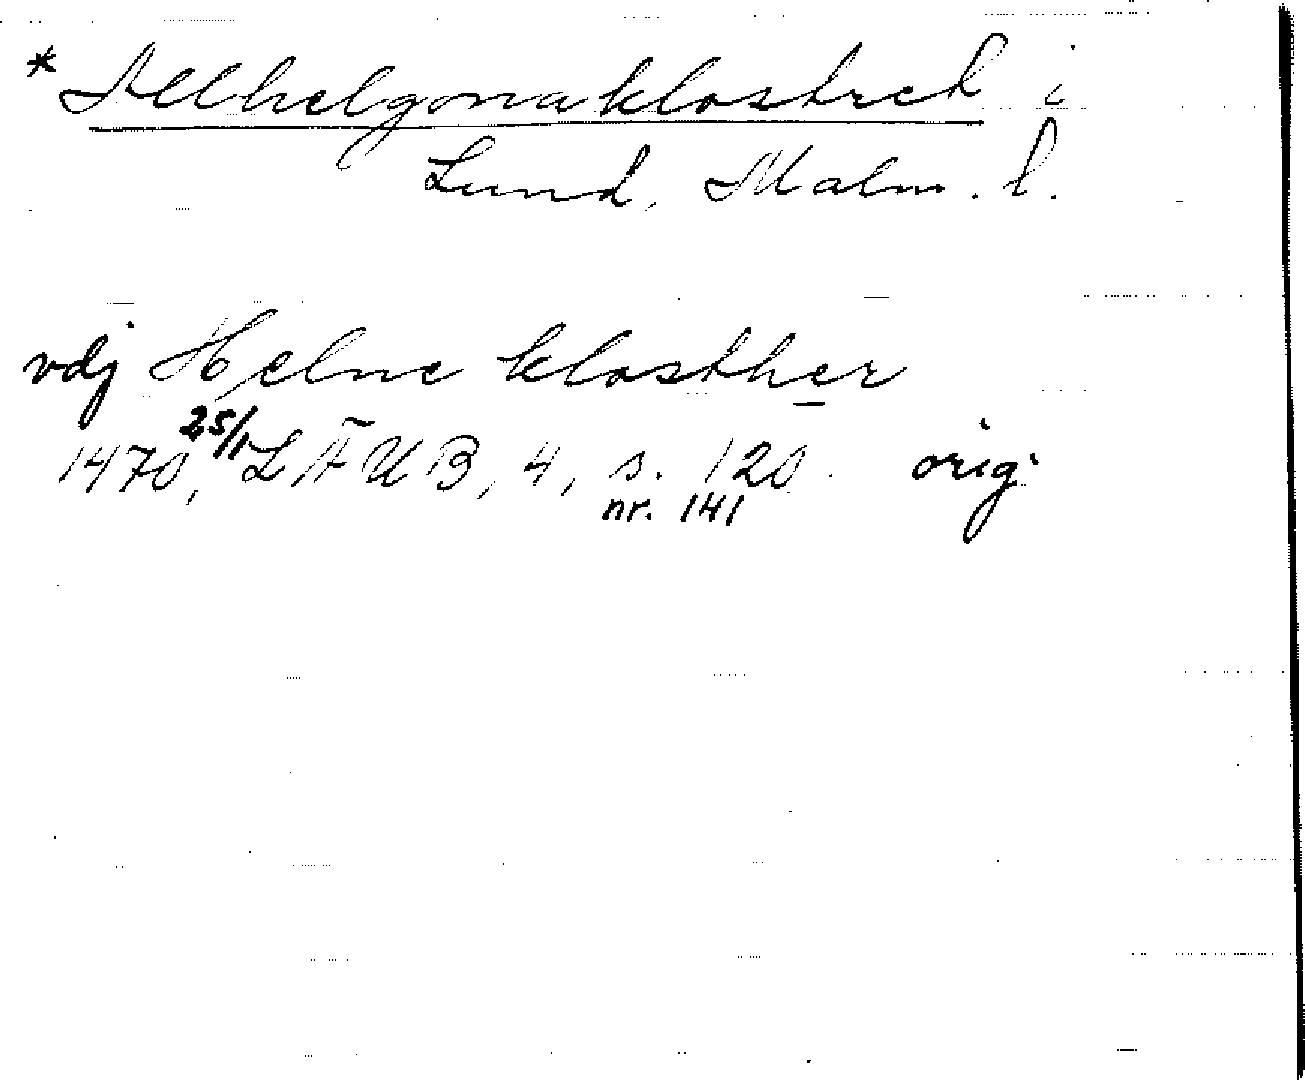 * Allhelgonaklostret i
Lund, Malm. l.
vdj Helne klosther
1470, 25/1 LÄUB, 4, s. 120. orig.
nr. 141